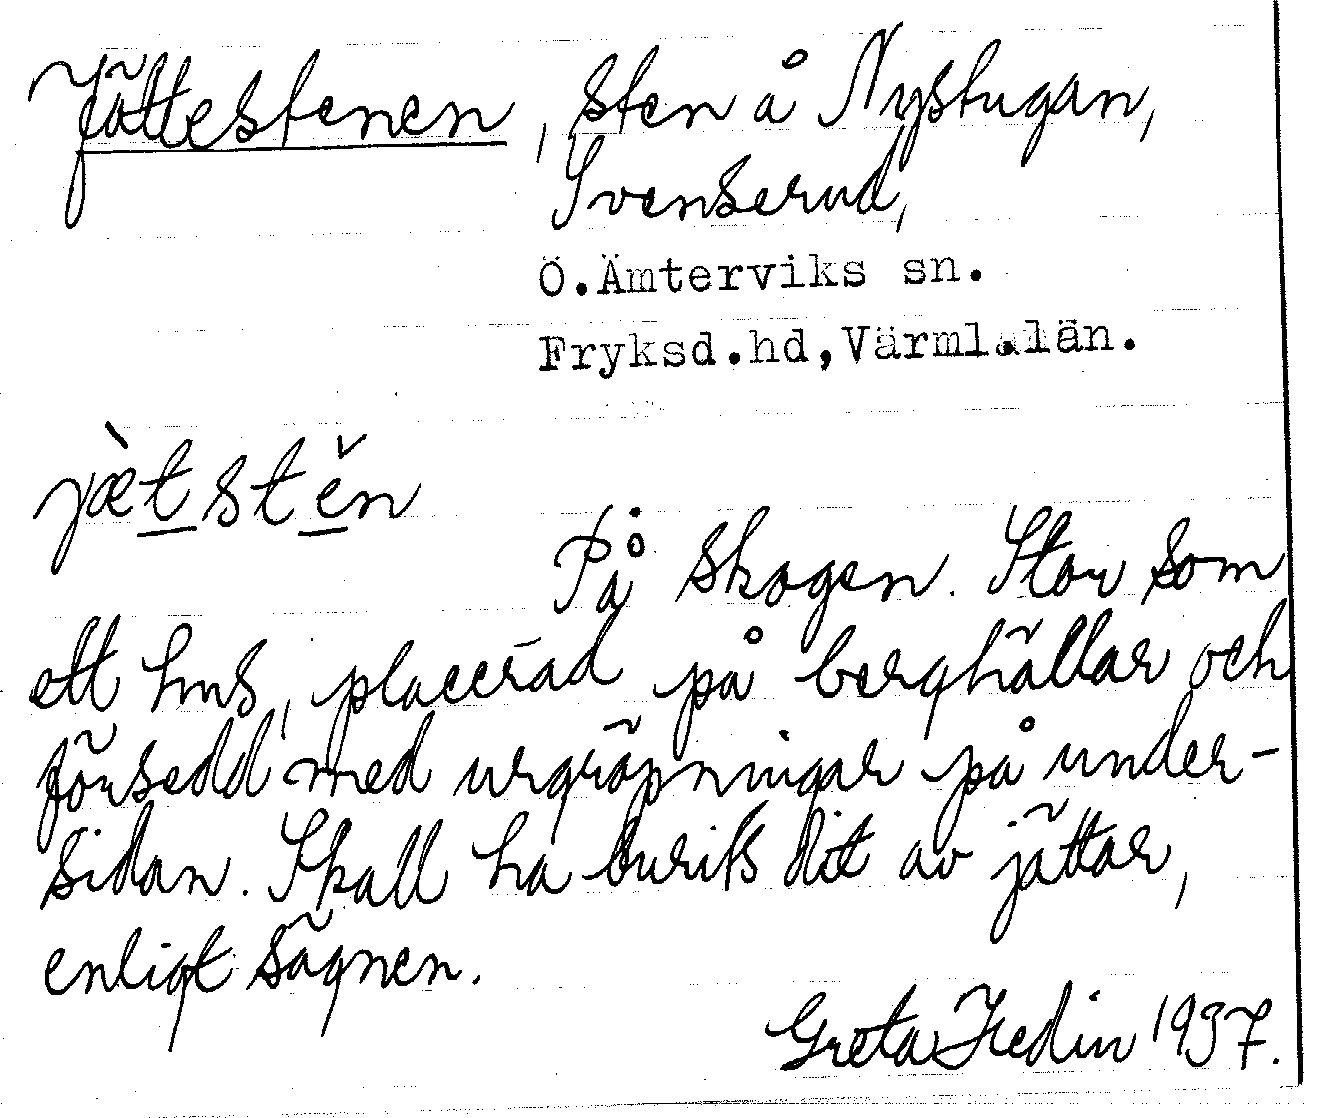 Jättestenen, sten å Nystugan,
Svenserud,
Ö.Ämterviks sn.
Fryksd.hd, Värml.län.
jæ̀tstěn
På skogen. Stor som
ett hus, placerad på berghällar och
försedd med urgröpningar på under-
sidan. Skall ha burits dit av jättar,
enligt sägnen.
Greta Hedin 1937.